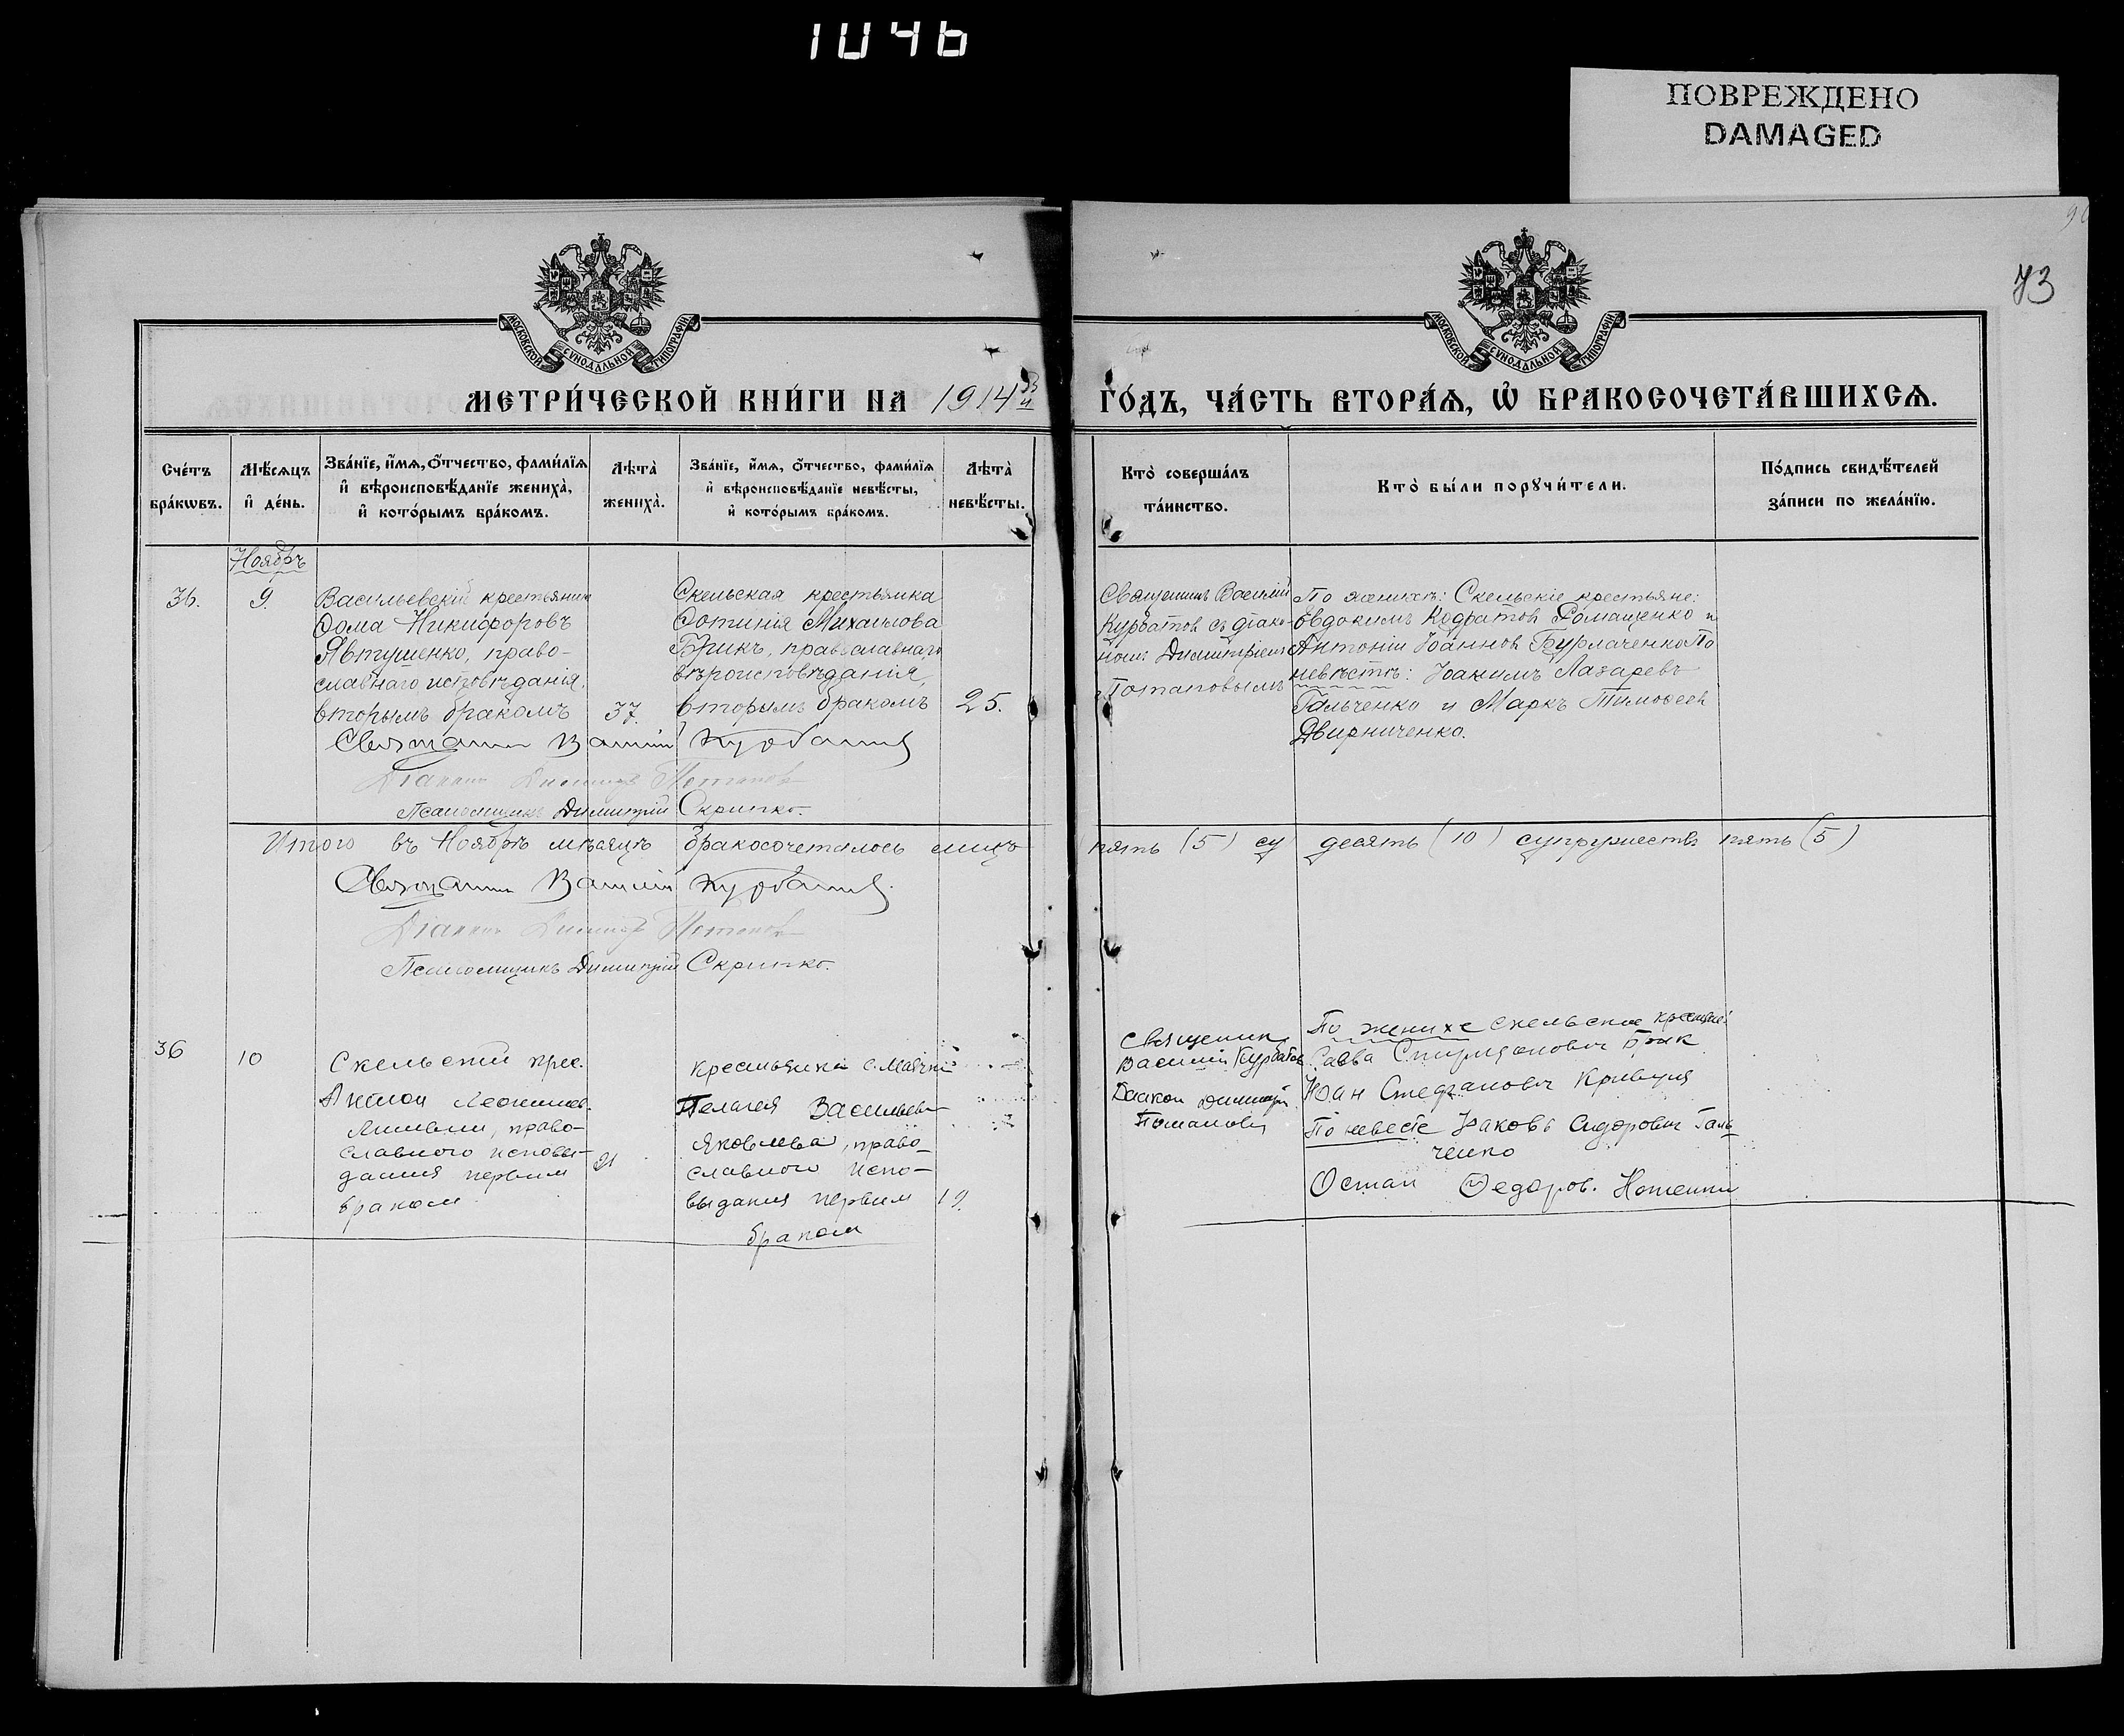 1046
ПОВРЕЖДЕНО
DAMAGED
73
МОСКОВСКОЙ СѴНОДАЛЬНОЙ ТИПОГРАФІИ
МОСКОВСКОЙ СѴНОДАЛЬНОЙ ТИПОГРАФІИ
МЕТРИ́ЧЕСКОЙ КНИ́ГИ НА 1914й
ГО́ДЪ, ЧА́СТЬ ВТОРА́Ѧ, Ѡ҆ БРАКОСОЧЕТА́ВШИХСѦ.
Сче́тъ
бра́кѡвъ.
Мѣ́сѧцъ
и҆ де́нь.
Зва́нїе, и҆́мѧ, о҆́тчество, фами́лїѧ
и҆ вѣроисповѣ́данїе жениха̀,
и҆ кото́рымъ бра́комъ.
Лѣта̀
жениха̀.
Зва́нїе, и҆́мѧ, о҆́тчество, фами́лїѧ
и҆ вѣроисповѣ́данїе невѣ́сты,
и҆ кото́рымъ бра́комъ.
Лѣта̀
невѣ́сты.
Кто̀ соверша́лъ
та́инство.
Кто̀ бы́ли порꙋчи́тели.
По́дпись свидѣ́телей
за́писи по жела́нїю.
Ноябрь
36.
9.
Васильевскій крестьянинъ
Ѳома Никифоровъ
Явтушенко, право-
славнаго исповѣданія,
вторымъ бракомъ
37.
Скельская крестьянка
Фотинія Михаилова
Бзикъ, православнаго
вѣроисповѣданія,
вторымъ бракомъ
25.
Священникъ Василій
Курбатовъ съ діако-
номъ Димитріемъ
Потаповымъ
По женихѣ: Скельскіе крестьяне:
Евдокимъ Кодратовъ Ромащенко и
Антоній Іоанновъ Бурлаченко По
невѣстѣ: Іоакимъ Лазаревъ
Гальченко и Маркъ Тимоѳеевъ
Двирниченко.
Священникъ Василій Курбатовъ
Діаконъ Димитрій Потаповъ
Псаломщикъ Димитрій Скрипко.
Итого въ Ноябрѣ мѣсяцѣ бракосочеталось лицъ
пять (5) су десять (10) супружествъ пять (5)
Священникъ Василій Курбатовъ.
Діаконъ Димитрій Потаповъ
Псаломщикъ Димитрій Скрипко.
36
10
Скельский крес.
Антон
право-
славного исповы-
дания первим
браком
21
крестьянка с.
Пелагея Васильев
Яковлева, право
славного испо-
выдания первим
браком
19.
Священик
Василий Курбатов
Диакон Димитрий
Потапов
По женихе скельские
Савва Бзик
Іоан Стефанович Кривуля
По невесте Іаковъ Сидорович Галь
ченко
Остап Федоров.